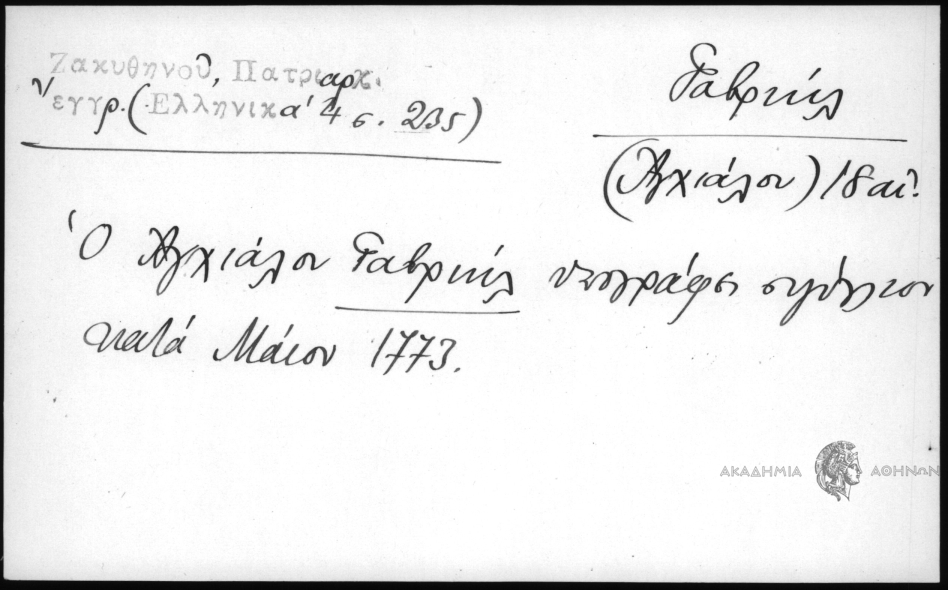 Ζακυθηνοῦ, Πατριαρχ.
ἔγγρ. (Ἑλληνικά 4 σ. 235)
Γαβριήλ
(Ἀγχιάλου) 18 αἰ.
Ὁ Ἀγχιάλου Γαβριήλ ὑπογράφει σιγίλλιον
κατά Μάιον 1773.
ΑΚΑΔΗΜΙΑ ΑΘΗΝΩΝ